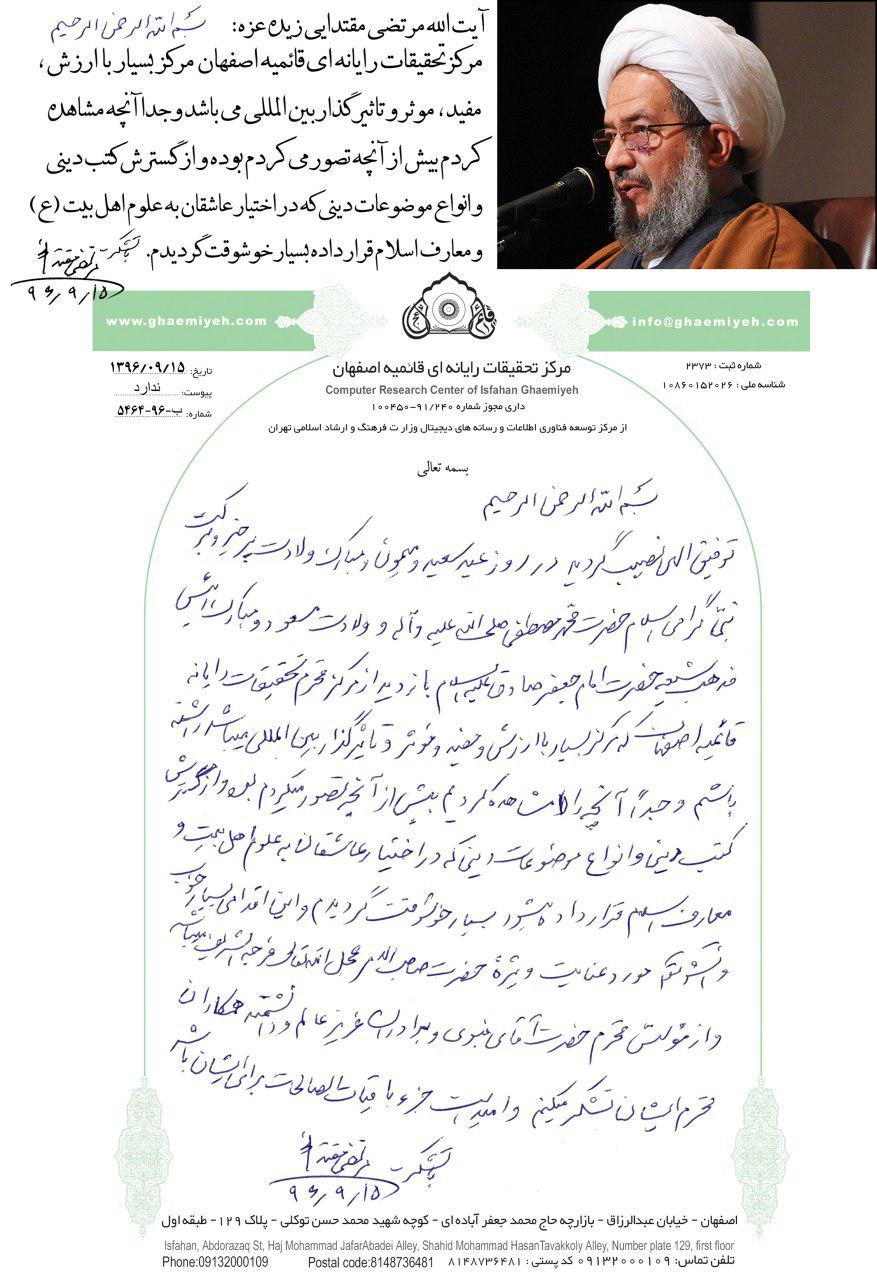 آیت الله مرتضی مقتدایی زیده عزه: بسم الله الرحمن الرحیم
مرکز تحقیقات رایانه ای قائمیه اصفهان مرکز بسیار با ارزش،
مفید، موثر و تاثیر گذار بین المللی می باشد و جدا آنچه مشاهده
کردم بیش از آنچه تصور می کردم بوده و از گسترش کتب دینی
و انواع موضوعات دینی که در اختیار عاشقان به علوم اهل بیت (ع)
و معارف اسلام قرار داده بسیار خوشوقت گردیدم. با تشکر
مرتضی مقتدائی
۹۶/۹/۱۵
www.ghaemiyeh.com
info@ghaemiyeh.com
مرکز تحقیقات رایانه ای قائمیه اصفهان
Computer Research Center of Isfahan Ghaemiyeh
داری مجوز شماره ۹۱/۲۴۰-۱۰۰۴۵۰
از مرکز توسعه فناوری اطلاعات و رسانه های دیجیتال وزارت فرهنگ و ارشاد اسلامی تهران
شماره ثبت : ۲۳۷۳
شناسه ملی : ۱۰۸۶۰۱۵۲۰۲۶
تاریخ: ۱۳۹۶/۰۹/۱۵
پیوست: ندارد
شماره: ب-۹۶-۵۴۶۴
بسمه تعالی
بسم الله الرحمن الرحیم
توفیق الهی نصیب گردید در روز عید سعید و میمون و مبارک ولادت پرخیر و برکت
نبی گرامی اسلام حضرت محمد مصطفی صلی الله علیه و آله و ولادت مسعود و مبارک رئیس
مذهب شیعه حضرت امام جعفر صادق علیه السلام بازدید از مرکز محترم تحقیقات رایانه
قائمیه اصفهان که مرکز بسیار با ارزش و مفید و موثر و تاثیر گذار بین المللی میباشد داشته
باشم و جداً آنچه را مشاهده کردیم بیش از آنچه تصور میکردم بود و از گسترش
کتب دینی و انواع موضوعات دینی که در اختیار عاشقان به علوم اهل بیت و
معارف اسلام قرار داده میشود بسیار خوشوقت گردیدم و این اقدامی بسیار خوب
و مورد عنایت ویژه حضرت صاحب الامر عجل الله تعالی فرجه الشریف میباشد
و از مؤسس محترم حضرت آقای و برادران عزیز عالم و دانشمند همکاران
محترم ایشان تشکر میکنیم و امید است جزء باقیات الصالحات برای ایشان باشد
با تشکر
مرتضی مقتدائی
۹۶/۹/۱۵
اصفهان - خیابان عبدالرزاق - بازارچه حاج محمد جعفر آباده ای - کوچه شهید محمد حسن توکلی - پلاک ۱۲۹- طبقه اول
Isfahan, Abdorazaq St, Haj Mohammad JafarAbadei Alley, Shahid Mohammad HasanTavakkoly Alley, Number plate 129, first floor
Phone:09132000109 Postal code:8148736481 تلفن تماس: ۰۹۱۳۲۰۰۰۱۰۹ کد پستی : ۸۱۴۸۷۳۶۴۸۱